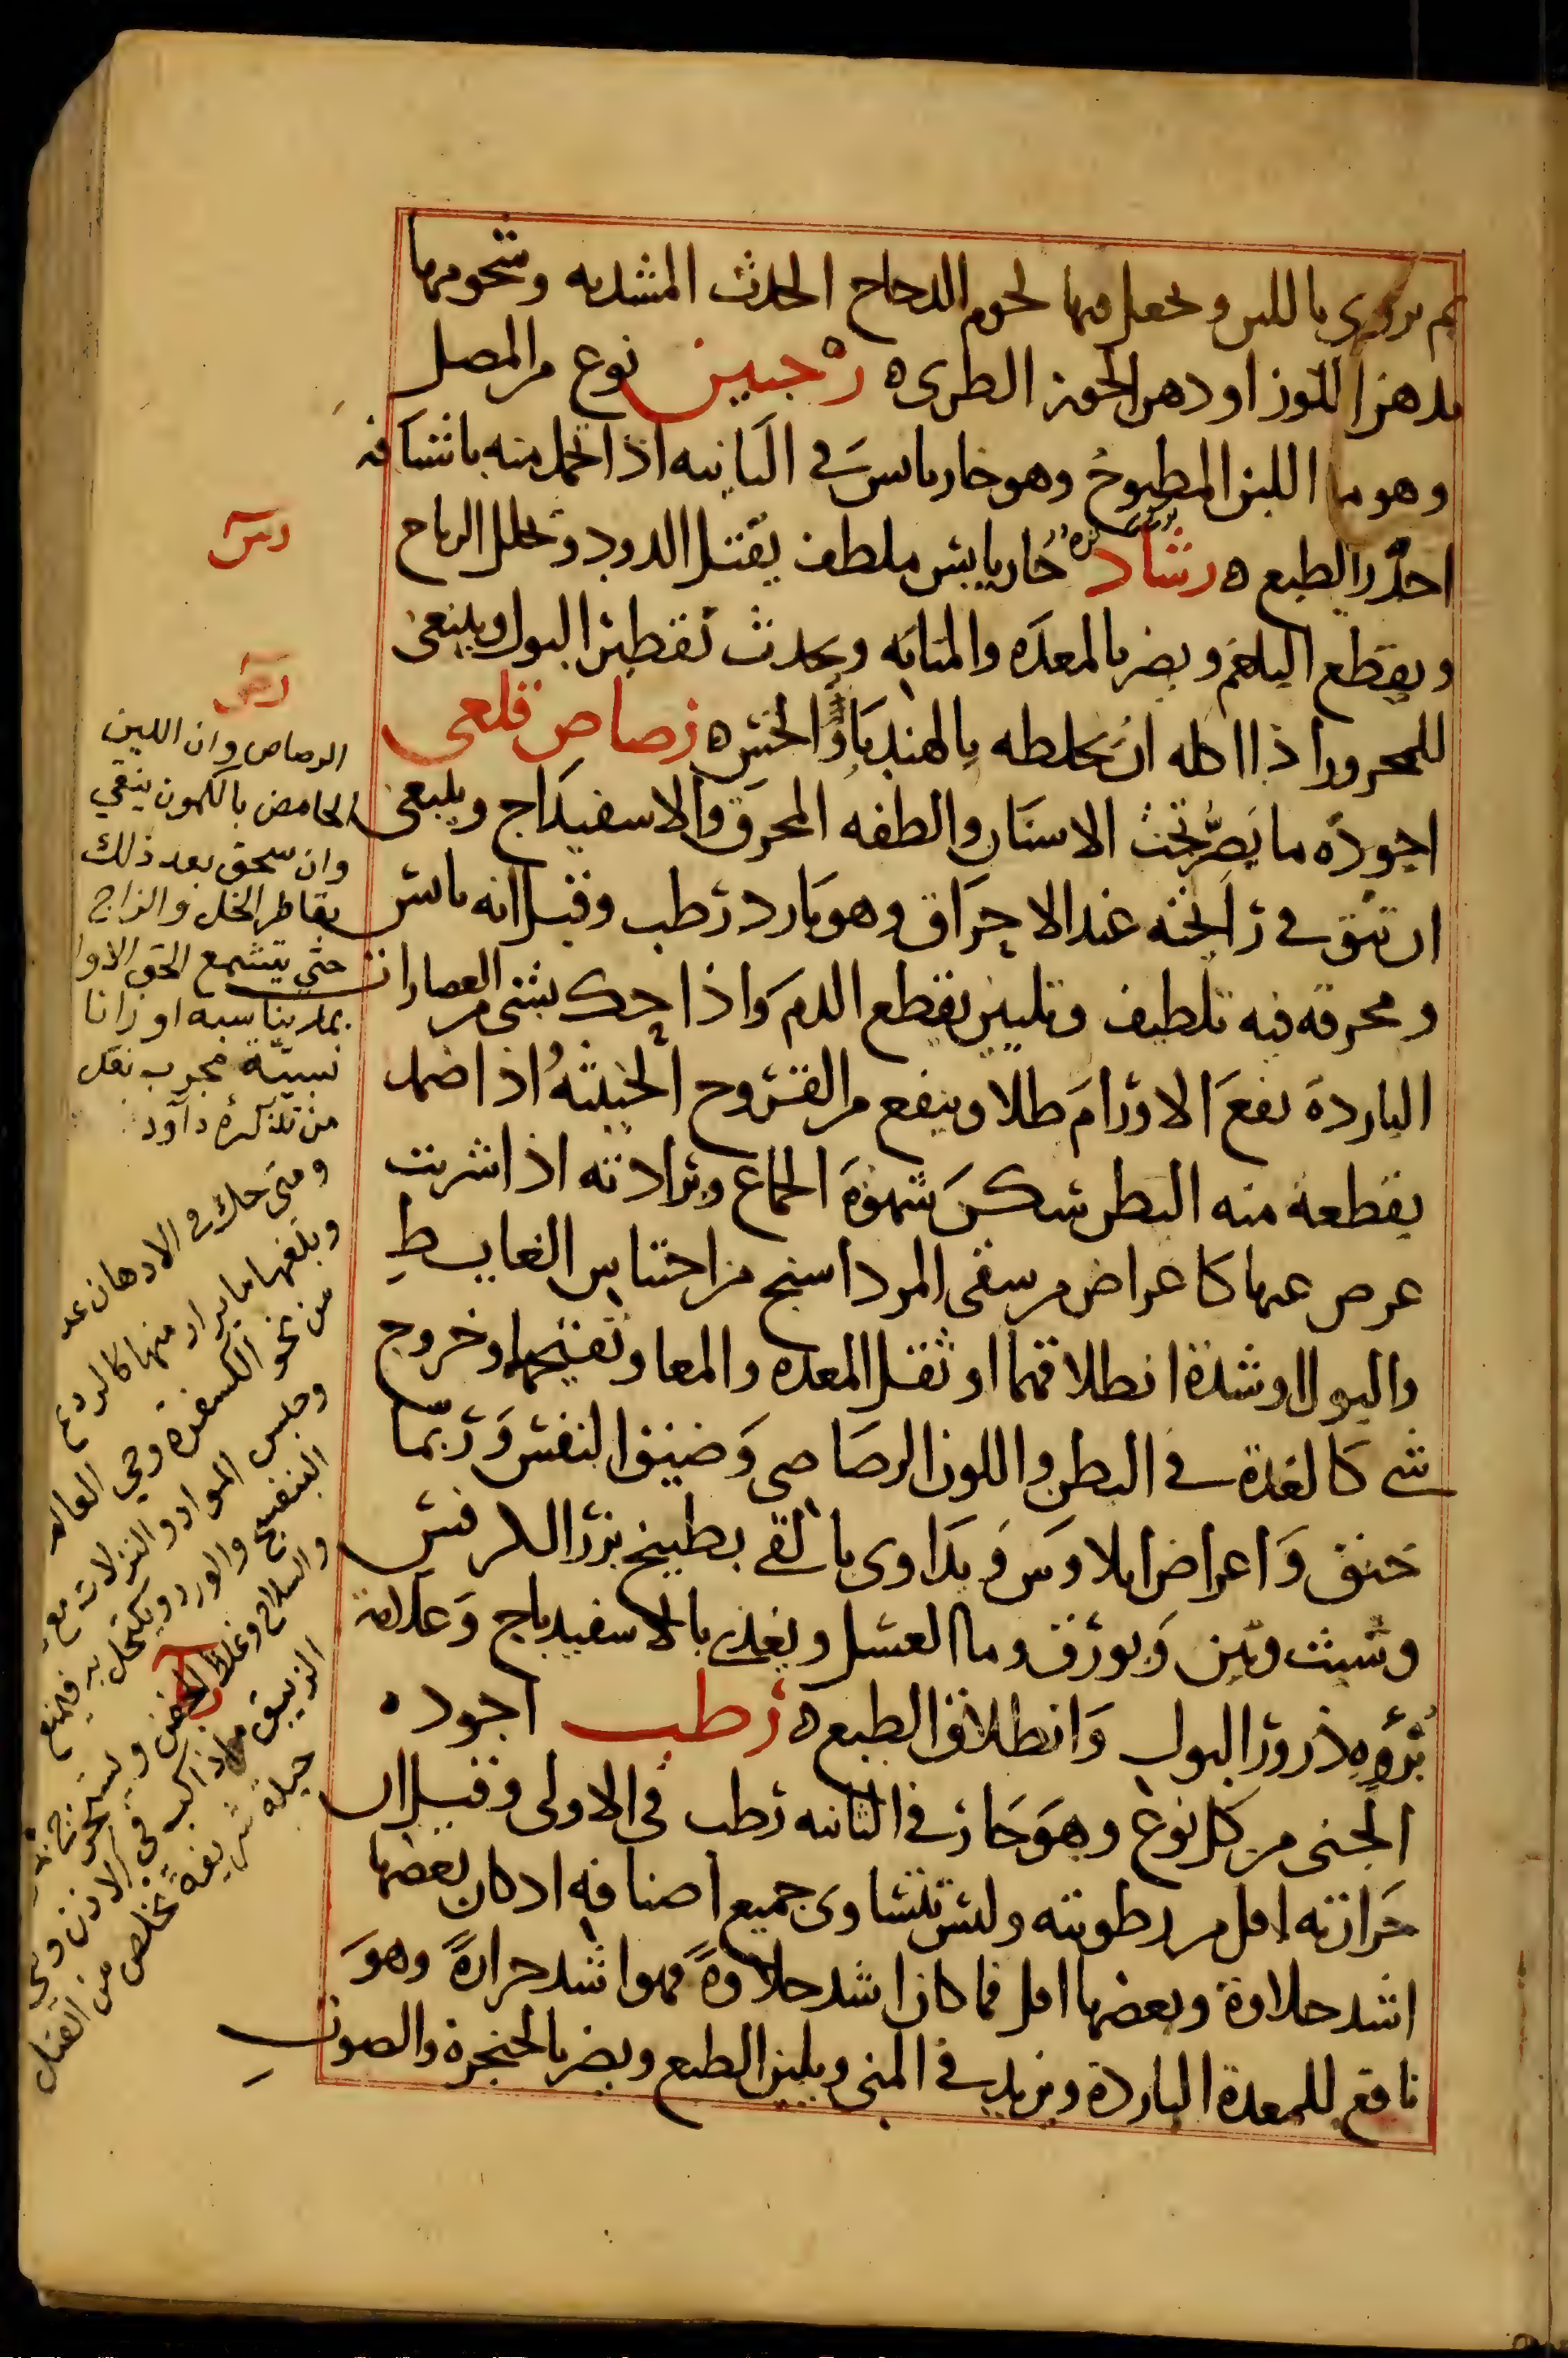 ثم تروى باللبن ويجعل فيها لحوم الدجاج الحدث المشدبه وشحومها
بدهن اللوز او دهن الجوز الطرى ه رخبين نوع من المصل
وهو ما اللبن المطبوخ وهو حار يابس فى الثانيه اذا تحمل منه باشيافه
احدر الطبع ه رشاد حار يابس ملطف يقتل الدود ويحلل الرياح
ويقطع البلغم ويضر بالمعده والمثانه ويحدث تقطير البول وينبغى
للمحرور اذا اكله ان يخلطه بالهندبا والخس ه رصاص قلعى
اجوده ما يصر تحت الاسنان والطفه المحرق والاسفيداج وينبغى
ان تتق فى رائحته عند الاحراق وهو بارد رطب وقيل انه يابس
ومحرقه فيه تلطيف وتليين يقطع الدم واذا حك بشى من العصارات
البارده نفع الاورام طلا وينفع من القروح الخبيثه اذا ضمد
بقطعة منه البطن سكن شهوة الجماع وبرادته اذا شربت
عرض عنها كاعراض من سقى المرداسنج من احتباس الغايط
والبول او شدة انطلاقهما او ثقل المعده والمعا وتفتيحها وخروج
شى كالغدة فى البطن واللون الرصاصى وضيق النفس وربما
خنق واعراض ايلاوس ويداوى بالقى بطبيخ بزر الكرفس
وشبث وتين وبورق وما العسل ويغذى بالاسفيدباج وعلامة
بروه ذرور البول وانطلاق الطبع ه رطب اجوده
الجنى من كل نوع وهو حار فى الثانيه رطب فى الاولى وقيل ان
حرارته اقل من رطوبته وليس تتساوى جميع اصنافه اذ كان بعضها
اشد حلاوة وبعضها اقل فما كان اشد حلاوة فهو اشد حرارة وهو
نافع للمعدة الباردة ويزيد فى المنى ويلين الطبع ويضر بالحنجرة والصوت
رس
رص
الرصاص وان اللبن
الحامض بالكمون ينقي
وان سحق بعد ذلك
بقاطر الخل والزاج
حتي يتشمع الحق الاوا
بما يناسبه اوزانا
نسبيّة مجرب نقل
من تذكرة داود
ومتى حك فى الادهان
وبلغها ما يراد منها كالرديم
من نحو الكسفرة وحي العالم
وحلبس المواد والنزلات مع
البنفسج والورد ويكتحل به فيمنع
والسلاح وغلظ الجفن ويستخرج
الزيبق ماذا اكب في الاذن
حيلة شريفة تخلص من القتل